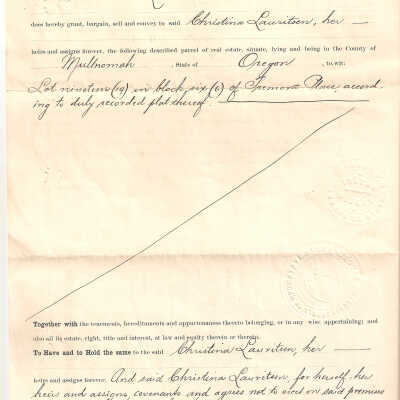 does hereby grant, bargain, sell and convey to said Christina Lauritsen, her
heirs and assigns forever, the following described parcel of real estate, situate, lying and being in the County of
Multnomah, State of Oregon, to-wit:
Lot nineteen (19) in block six (6) of Tremont Place, accord-
ing to duly recorded plat thereof.
Together with the tenements, hereditaments and appurtenances thereto belonging, or in any wise appertaining; and
also all its estate, right, title and interest, at law and equity therein or thereto.
To Have and to Hold the same to the said Christina Lauritsen, her
heirs and assigns forever. And said Christina Lauritsen, for herself, her
heirs and assigns, covenants and agrees not to erect on said premises